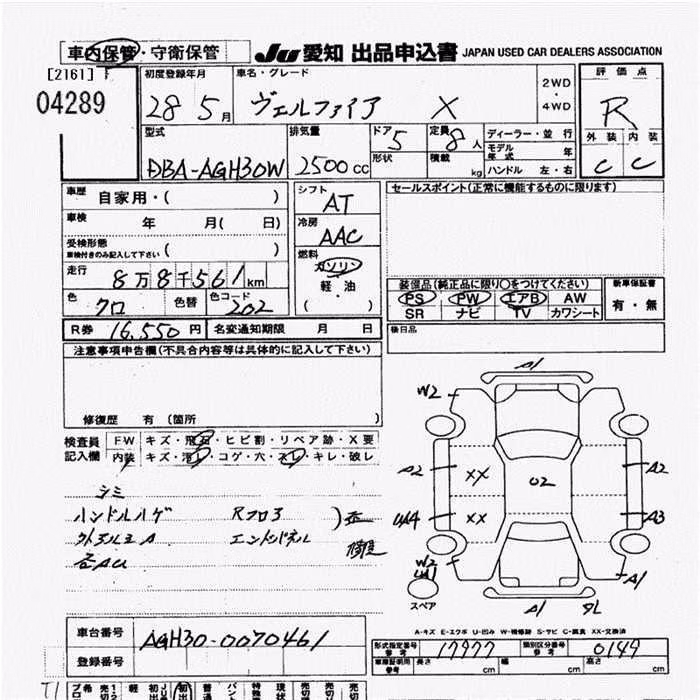 車内保管・守衛保管 JU 愛知 出品申込書 JAPAN USED CAR DEALERS ASSOCIATION
[2161] 初度登録年月 車名・グレード 2WD・4WD 評価点
04289 28 5月 ヴェルファイア X R
型式 排気量 ドア 5 定員 8人 ディーラー・並行 外装 内装
DBA-AGH30W 2500cc 形状 積載 kg モデル年式 年 C C
ハンドル 左・右
車歴 自家用・( ) シフト AT セールスポイント(正常に機能するものに限ります)
車検 年 月( 日) 冷房 AAC
受検形態 車検付きのみ記入して下さい ( )
燃料 ガソリン 軽油 ( )
走行 8万8千561km
装備品(純正品に限り○をつけてください) 新車保証書
色 クロ 色替 色コード 202
PS PW エアB AW 有・無
SR ナビ TV カワシート
R券 16,550円 名変通知期限 月 日 後日品
注意事項申告欄(不具合内容等は具体的に記入して下さい)
修復歴 有(箇所 )
検査員 FW キズ・飛石・ヒビ割・リペア跡・X要
記入欄 内装 キズ・汚レ・コゲ・穴・スレ・キレ・破レ
シミ
ハンドルハゲ Rフロア
A1
W2
A2 XX 02 A2
UA4 XX A3
W2
UA1 A1
スペア A1
A-キズ E-エクボ U-凹み W-補修跡 S-サビ C-腐食 XX-交換済
車台番号 AGH30-0070461
登録番号
形式指定番号 参考 17977 類別区分番号 参考 0149
車庫証明用 参考 長さ cm 幅 cm 高さ cm